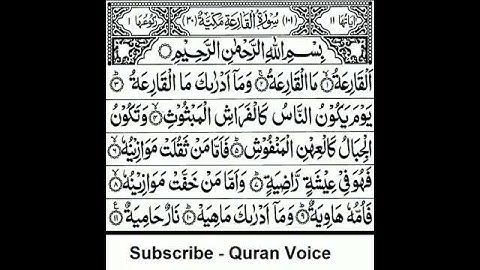 اٰیاتها ١١ (١٠١) سُوْرَةُ الْقَارِعَةِ مَكِّیَّةٌ (٣٠) رکوعها ١
بِسْمِ اللّٰهِ الرَّحْمٰنِ الرَّحِیْمِ
اَلْقَارِعَةُ ۙ﴿۱﴾ مَا الْقَارِعَةُ ۚ﴿۲﴾ وَمَاۤ اَدْرٰىكَ مَا الْقَارِعَةُ ؕ﴿۳﴾
یَوْمَ یَكُوْنُ النَّاسُ كَالْفَرَاشِ الْمَبْثُوْثِ ۙ﴿۴﴾ وَتَكُوْنُ
الْجِبَالُ كَالْعِهْنِ الْمَنْفُوْشِ ؕ﴿۵﴾ فَاَمَّا مَنْ ثَقُلَتْ مَوَازِیْنُهٗ ۙ﴿۶﴾
فَهُوَ فِیْ عِیْشَةٍ رَّاضِیَةٍ ؕ﴿۷﴾ وَاَمَّا مَنْ خَفَّتْ مَوَازِیْنُهٗ ۙ﴿۸﴾
فَاُمُّهٗ هَاوِیَةٌ ؕ﴿۹﴾ وَمَاۤ اَدْرٰىكَ مَاهِیَهْ ؕ﴿۱۰﴾ نَارٌ حَامِیَةٌ ﴿۱۱﴾
Subscribe - Quran Voice